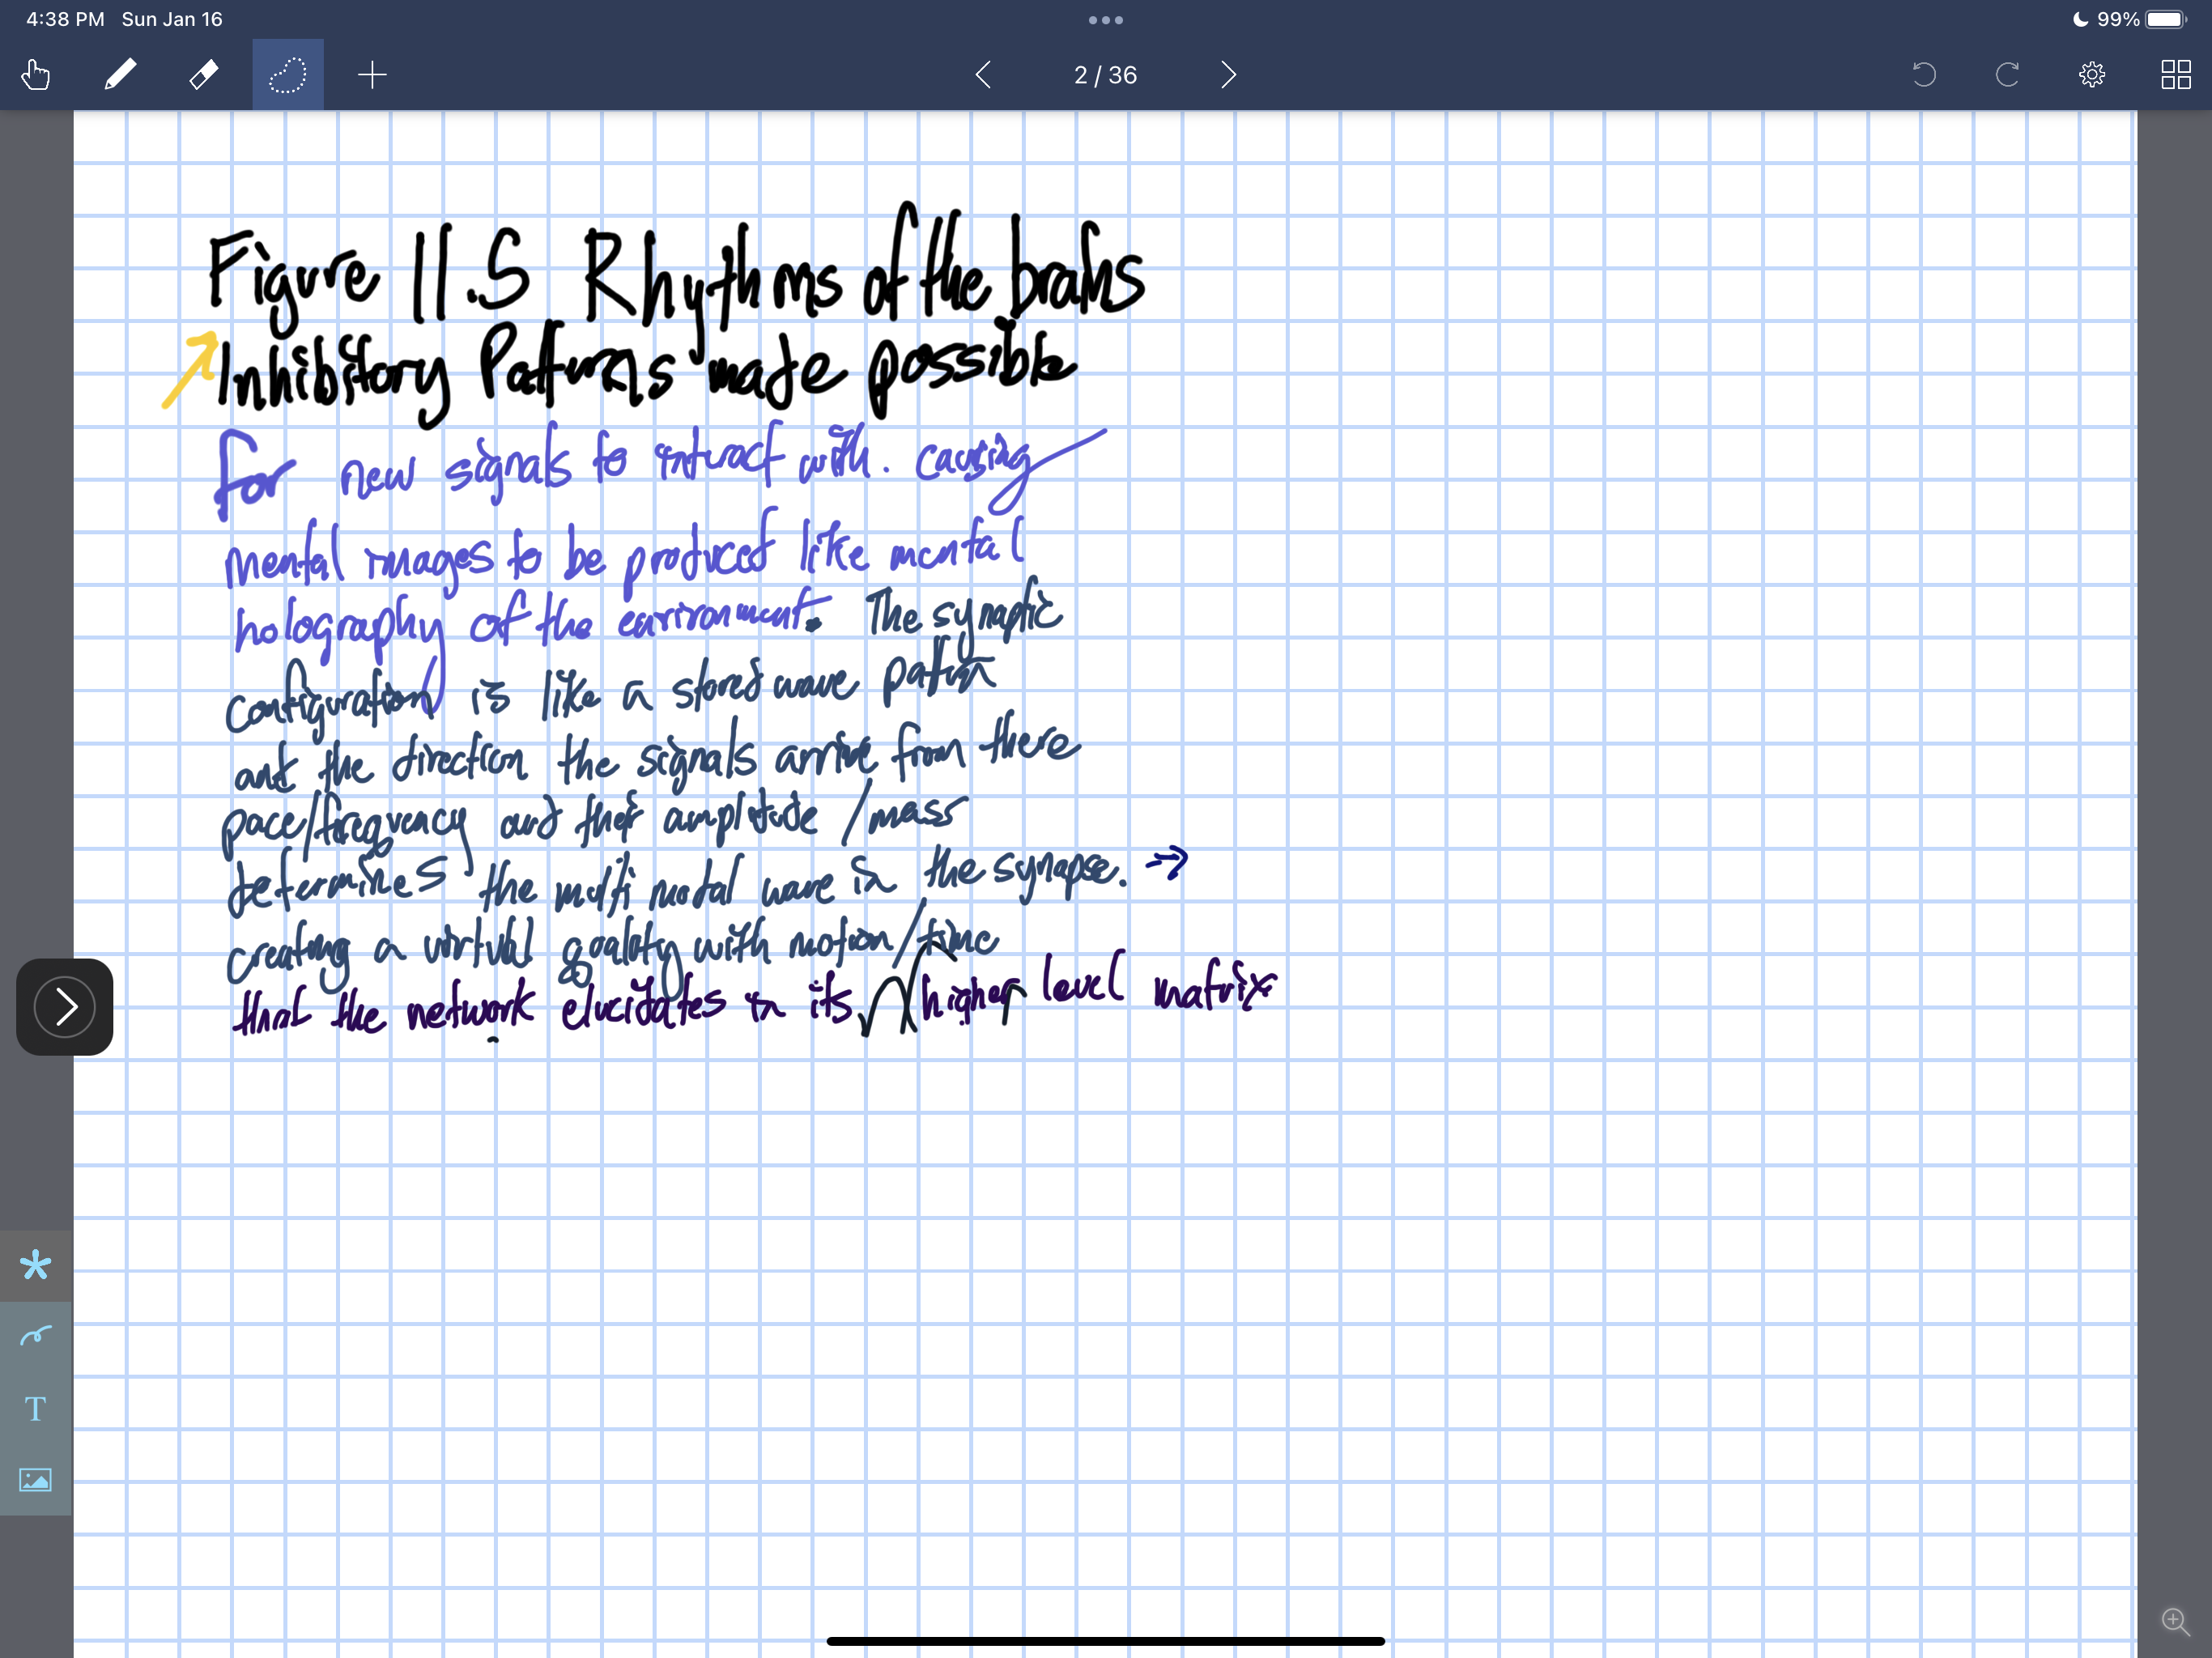 4:38 PM Sun Jan 16
99%
2 / 36
Figure 11.5 Rhythms of the brains
Inhibitory Patterns made possible
for new signals to interact with. causing
mental images to be produced like mental
holography of the environment. The synaptic
configuration is like a stored wave pattern
and the direction the signals arrive from there
pace/frequency and their amplitude / mass
determines the multi modal wave in the synapse. →
creating a virtual with motion / time
that the network elucidates in its higher level matrix
T